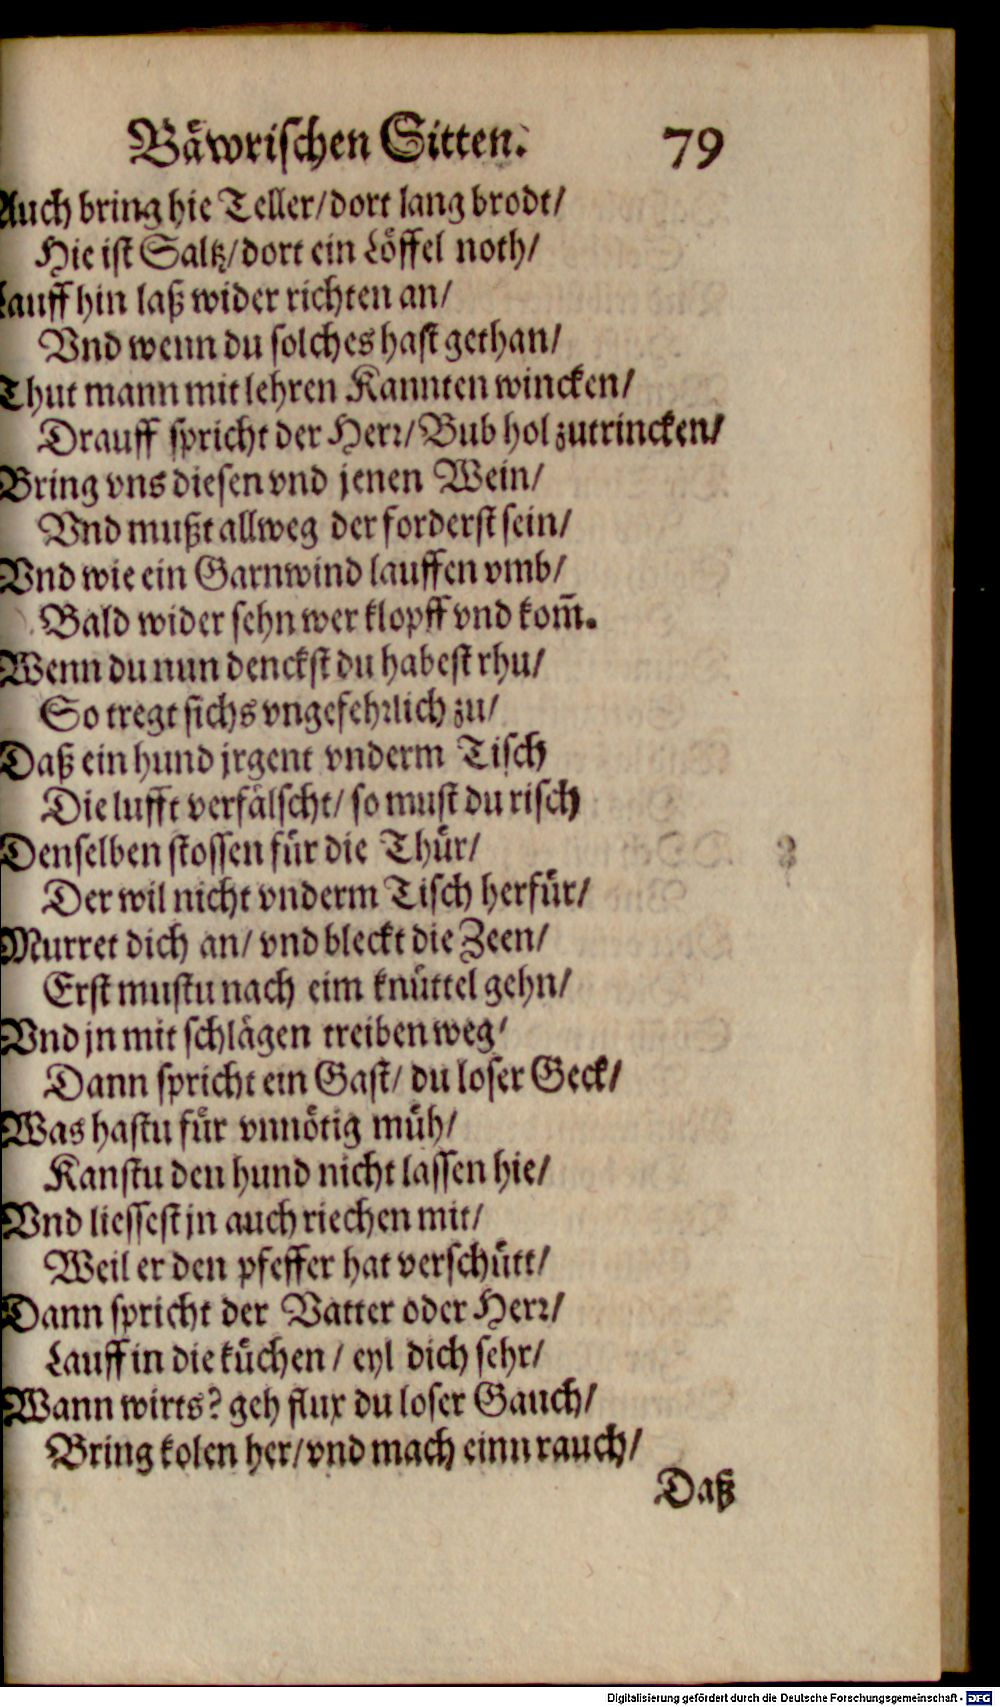 Bäwrischen Sitten. 79
Auch bring hie Teller/dort lang brodt/
Hie ist Saltz/dort ein Löffel noth/
Lauff hin laß wider richten an/
Vnd wenn du solches hast gethan/
Thut mann mit lehren Kannten wincken/
Drauff spricht der Herr/Bub hol zutrincken/
Bring vns diesen vnd jenen Wein/
Vnd mußt allweg der forderst sein/
Vnd wie ein Garnwind lauffen vmb/
Bald wider sehn wer klopff vnd kom̃.
Wenn du nun denckst du habest rhu/
So tregt sichs vngefehrlich zu/
Daß ein hund jrgent vnderm Tisch
Die lufft verfälscht/ so must du risch
Denselben stossen für die Thür/
Der wil nicht vnderm Tisch herfür/
Murret dich an/ vnd bleckt die Zeen/
Erst mustu nach eim knüttel gehn/
Vnd jn mit schlägen treiben weg/
Dann spricht ein Gast/ du loser Geck/
Was hastu für vnnötig müh/
Kanstu den hund nicht lassen hie/
Vnd liessest jn auch riechen mit/
Weil er den pfeffer hat verschütt/
Dann spricht der Vatter oder Herr/
Lauff in die küchen/ eyl dich sehr/
Wann wirts? geh flux du loser Gauch/
Bring kolen her/vnd mach einn rauch/
Daß
Digitalisierung gefördert durch die Deutsche Forschungsgemeinschaft - DFG